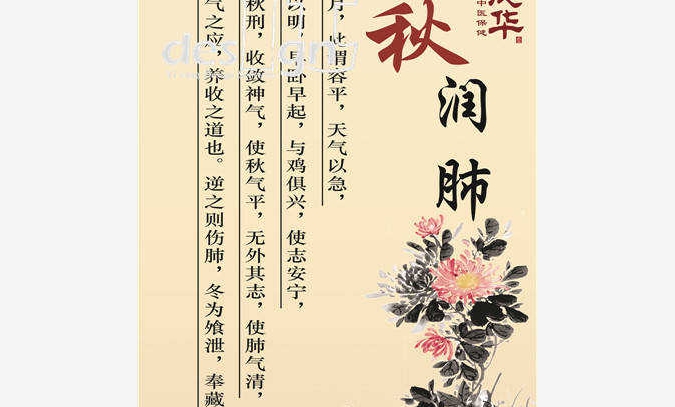 华
中医保健
秋
润肺
月，此谓容平，天气以急，
以明，早卧早起，与鸡俱兴，使志安宁，
秋刑，收敛神气，使秋气平，无外其志，使肺气清，
气之应，养收之道也。逆之则伤肺，冬为飧泄，奉藏
design